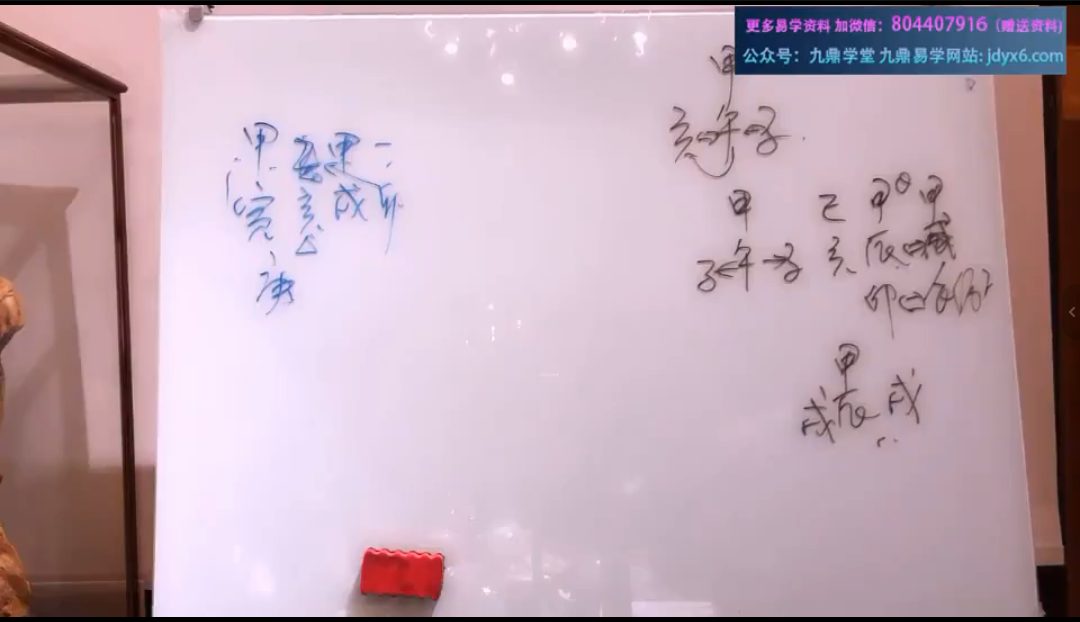 更多易学资料 加微信：804407916（赠送资料）
公众号：九鼎学堂 九鼎易学网站：jdyx6.com
甲 甲
寅 亥 戌 卯
庚
甲
亥 午 子
甲
子 午 子
己 甲 甲
亥 辰 戌
卯
甲
戌 辰 戌